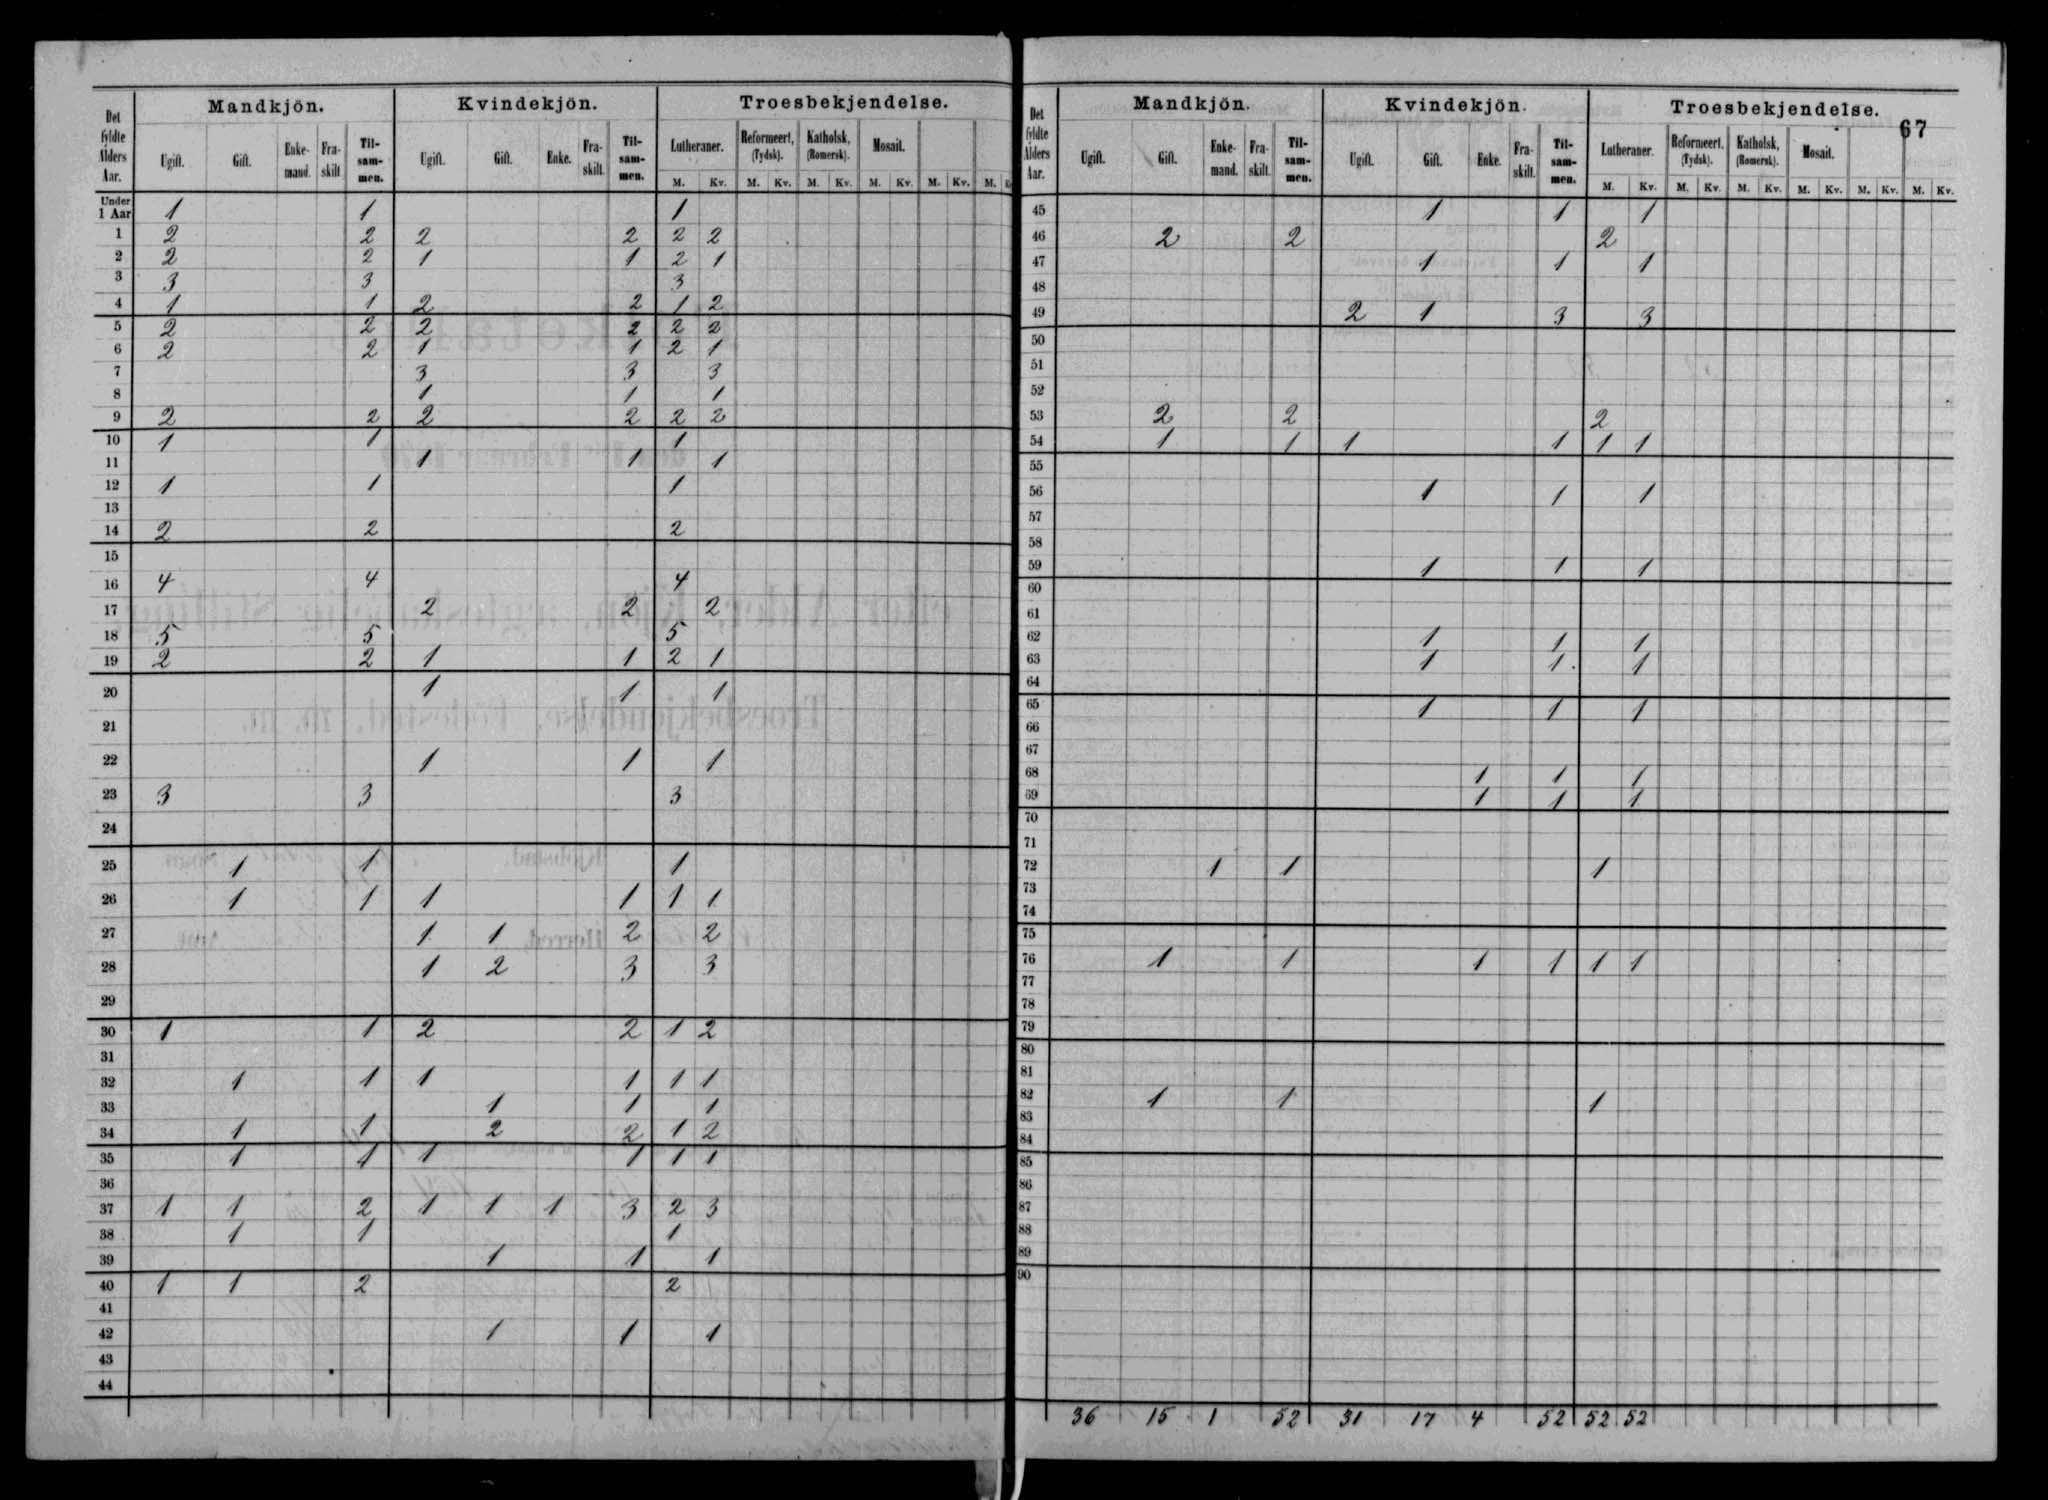 Det fyldte Alders Aar. | Mandkjön. | Kvindekjön. | Troesbekjendelse.
Ugift. | Gift. | Enke-mand. | Fra-skilt | Til-sam-men. | Ugift. | Gift. | Enke. | Fra-skilt. | Til-sam-men. | Lutheraner. | Reformeert, (Tydsk). | Katholsk, (Romersk). | Mosait.
M. Kv. M. Kv. M. Kv. M. Kv. M. Kv. M.
Under 1 Aar 1 1 1
1 2 2 2 2 2 2
2 2 2 1 1 2 1
3 3 3 3
4 1 1 2 2 1 2
5 2 2 2 2 2 2
6 2 2 1 1 2 1
7 3 3 3
8 1 1 1
9 2 2 2 2 2 2
10 1 1 1
11 1 1 1
12 1 1 1
13
14 2 2 2
15
16 4 4 4
17 2 2 2
18 5 5 5
19 2 2 1 1 2 1
20 1 1 1
21
22 1 1 1
23 3 3 3
24
25 1 1 1
26 1 1 1 1 1 1
27 1 1 2 2
28 1 2 3 3
29
30 1 1 2 2 1 2
31
32 1 1 1 1 1 1
33 1 1 1
34 1 1 2 2 1 2
35 1 1 1 1 1 1
36
37 1 1 2 1 1 1 3 2 3
38 1 1 1
39 1 1 1
40 1 1 2 2
41
42 1 1 1
43
44
67
Det fyldte Alders Aar. | Mandkjön. | Kvindekjön. | Troesbekjendelse.
Ugift. | Gift. | Enke-mand. | Fra-skilt. | Til-sam-men. | Ugift. | Gift. | Enke. | Fra-skilt. | Til-sam-men. | Lutheraner. | Reformeert, (Tydsk). | Katholsk, (Romersk). | Mosait.
M. Kv. M. Kv. M. Kv. M. Kv. M. Kv. M. Kv.
45 1 1 1
46 2 2 2
47 1 1 1
48
49 2 1 3 3
50
51
52
53 2 2 2
54 1 1 1 1 1 1
55
56 1 1 1
57
58
59 1 1 1
60
61
62 1 1 1
63 1 1 1
64
65 1 1 1
66
67
68 1 1 1
69 1 1 1
70
71
72 1 1 1
73
74
75
76 1 1 1 1 1 1
77
78
79
80
81
82 1 1 1
83
84
85
86
87
88
89
90
36 15 1 52 31 17 4 52 52 52